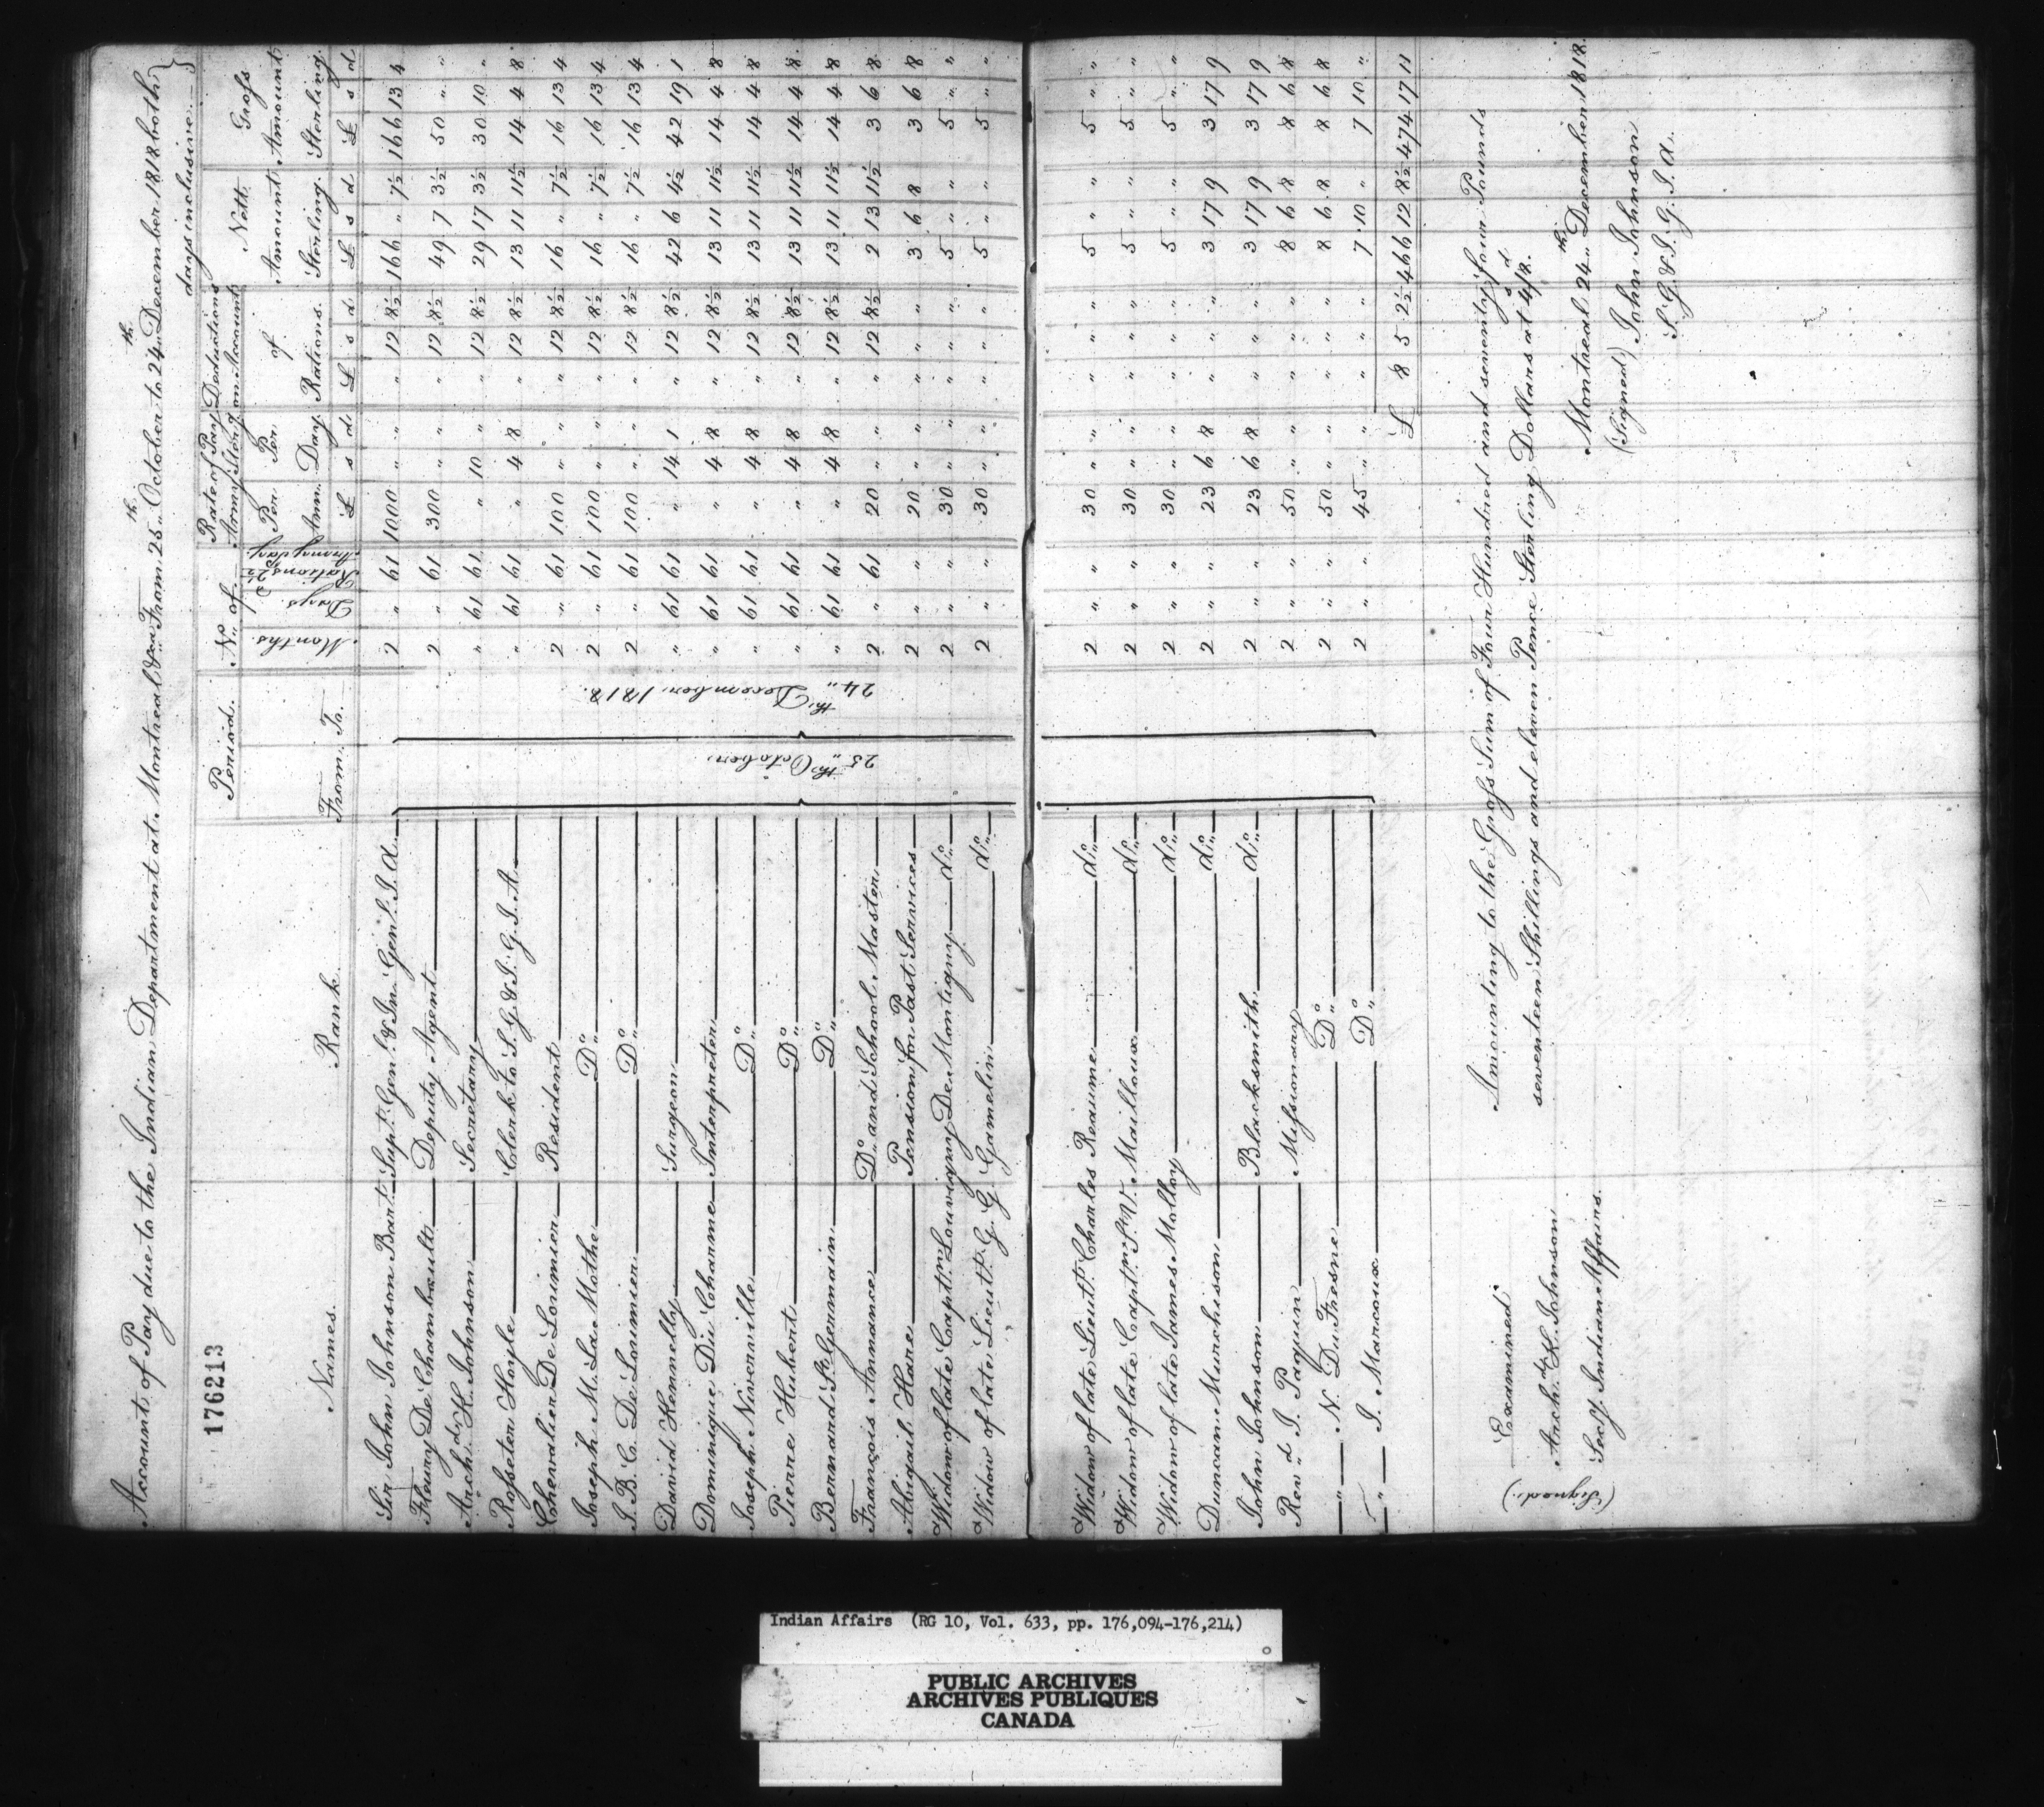 Account of Pay due to the Indian Department at Montreal &ca From 25th October to 24th December 1818 both
days inclusive
176213
Names. Rank. Period. No. of Rate of Pay Army Sterg. Deductions on Account of Rations. Nett Amount Sterling. Gross Amount Sterling.
From. To. Months. Days. Rations 2½d Army pay Per Ann. Per Day
£ s d £ s d £ s d £ s d
25th October. 24th December 1818.
Sir John Johnson Bart. Supt. Genl. & In. Genl. I. A. 2 " 61 1000 " " " 12 8½ 166 " 7½ 166 13 4
Fleury De Chambault Deputy Agent 2 " 61 300 " " " 12 8½ 49 7 3½ 50 " "
Archd. K. Johnson Secretary " 61 61 " 10 " " 12 8½ 29 17 3½ 30 10 "
Rosseter Hoyle Clerk to S. G. & I. G. I. A. " 61 61 " 4 8 " 12 8½ 13 11 11½ 14 4 8
Chevalier De Lorimier Resident 2 " 61 100 " " " 12 8½ 16 " 7½ 16 13 4
Joseph M. La Mothe Do. 2 " 61 100 " " " 12 8½ 16 " 7½ 16 13 4
J. B. C. De Lorimier Do. 2 " 61 100 " " " 12 8½ 16 " 7½ 16 13 4
David Hennelly Surgeon " 61 61 " 14 1 " 12 8½ 42 6 4½ 42 19 1
Dominique Du Charme Interpreter " 61 61 " 4 8 " 12 8½ 13 11 11½ 14 4 8
Joseph Niverville Do. " 61 61 " 4 8 " 12 8½ 13 11 11½ 14 4 8
Pierre Hubert Do. " 61 61 " 4 8 " 12 8½ 13 11 11½ 14 4 8
Bernard St. Germain Do. " 61 61 " 4 8 " 12 8½ 13 11 11½ 14 4 8
François Annance Do. and School Master 2 " 61 20 " " " 12 8½ 2 13 11½ 3 6 8
Abigail Hare Pension for Past Services 2 " " 20 " " " " " 3 6 8 3 6 8
Widow of late Captn. Louvigny De Montigny do. 2 " " 30 " " " " " 5 " " 5 " "
Widow of late Lieutt. G. G. Gamelin do. 2 " " 30 " " " " " 5 " " 5 " "
Widow of late Lieut. Charles Reaume do. 2 " " 30 " " " " " 5 " " 5 " "
Widow of late Captn. P. V. Mailloux do. 2 " " 30 " " " " " 5 " " 5 " "
Widow of late James Mallory do. 2 " " 30 " " " " " 5 " " 5 " "
Duncan Murchison do. 2 " " 23 6 8 " " " 3 17 9 3 17 9
John Johnson Blacksmith do. 2 " " 23 6 8 " " " 3 17 9 3 17 9
Revd. J. Paquin Missionary 2 " " 50 " " " " " 8 6 8 8 6 8
" N. Du Fresne Do. 2 " " 50 " " " " " 8 6 8 8 6 8
" J. Marcoux Do. 2 " " 45 " " " " " 7 10 " 7 10 "
£ 8 5 2½ 466 12 8½ 474 17 11
Amounting to the Gross Sum of Four Hundred and seventy four Pounds
seventeen Shillings and eleven Pence Sterling Dollars at 4s/8d.
Montreal 24th December 1818.
(Signed) John Johnson
S. G. & I. G. I. A.
Examined
(Signed) Archd. K. Johnson
Secy. Indian Affairs.
Indian Affairs (RG 10, Vol. 633, pp. 176,094-176,214)
PUBLIC ARCHIVES
ARCHIVES PUBLIQUES
CANADA